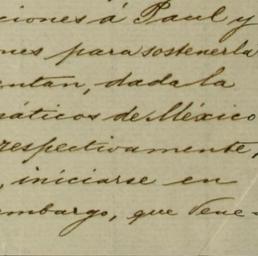 ciones á Paul y
ones para sostenerla
entan, dada la
máticos de México
respectivamente,
, iniciarse en
embargo, que Vene-